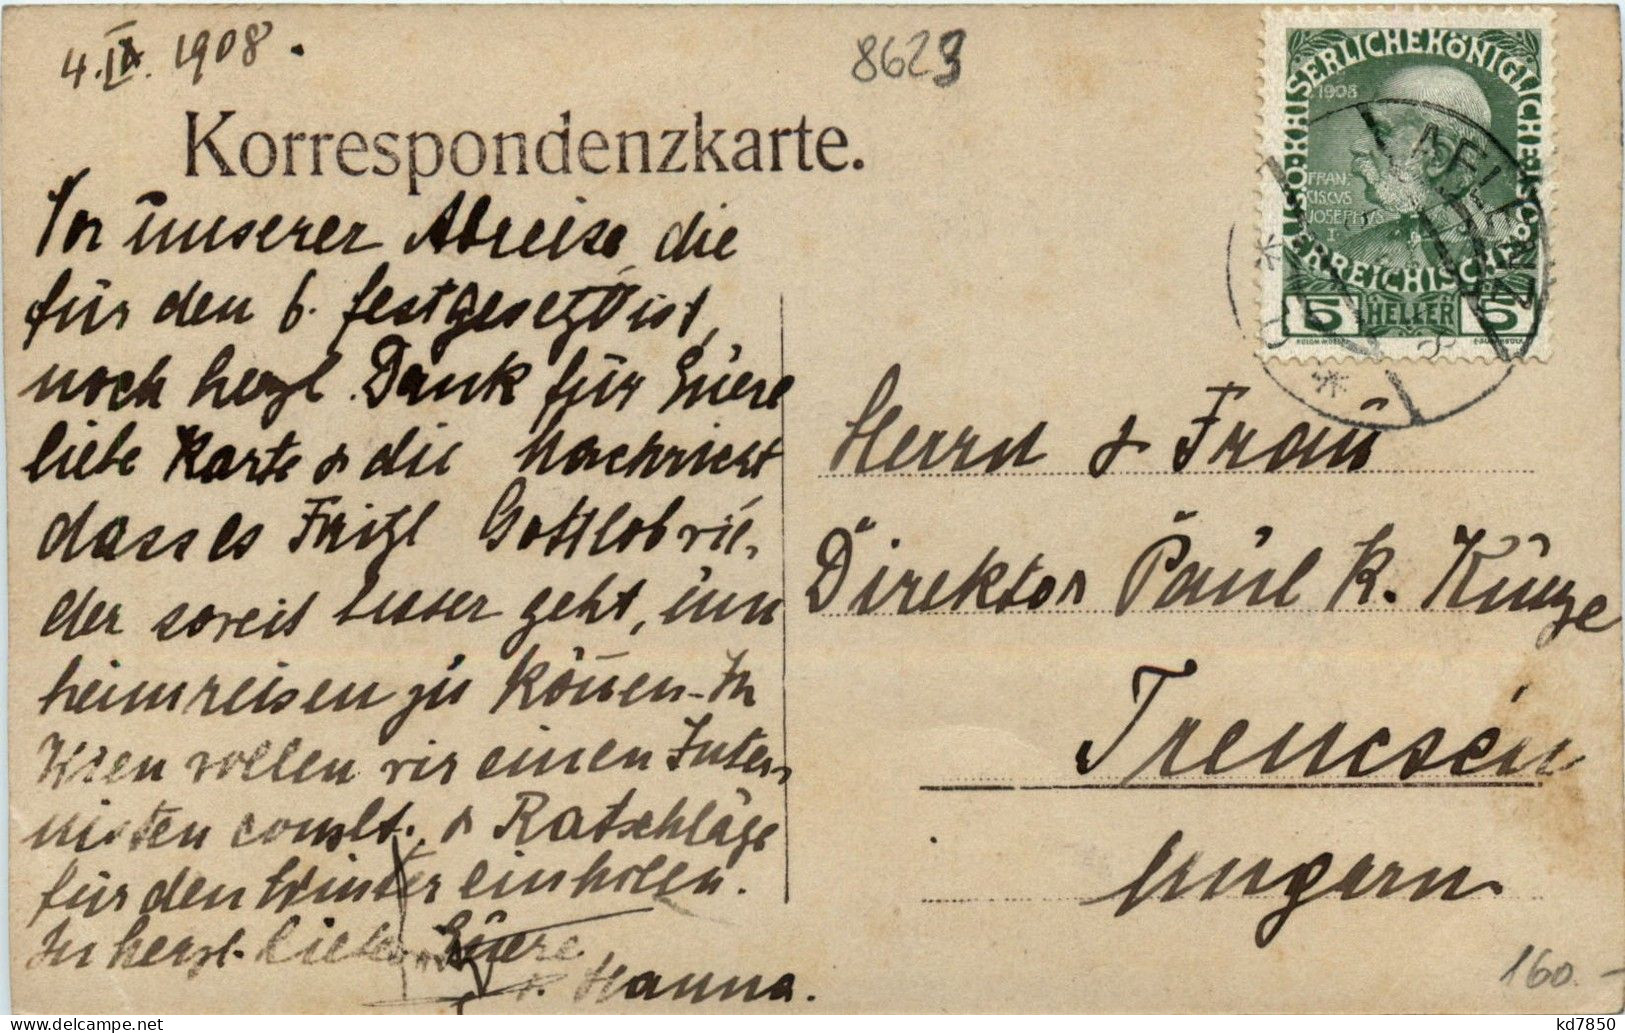 4. IX. 1908.
8623
Korrespondenzkarte.
Vor unserer Abreise, die
für den 6. festgesetzt ist,
noch herzl. Dank für Eure
liebe Karte & die Nachricht
dass es Fritzl Gottlob wie-
der soweit besser geht, um
heimreisen zu können. In
Wien wollen wir einen Inter-
nisten consult. & Ratschläge
für den Winter einholen.
In herzl. Liebe Eure
Hanna.
KAISERLICHE KÖNIGLICHE
ÖSTERREICHISCHE
1908
FRAN
CISCVS
JOSEPHVS
I
5 HELLER 5
Herrn & Frau
Direktor Paul K. Kunze
Trencsén
Ungarn.
160.-
kd7850